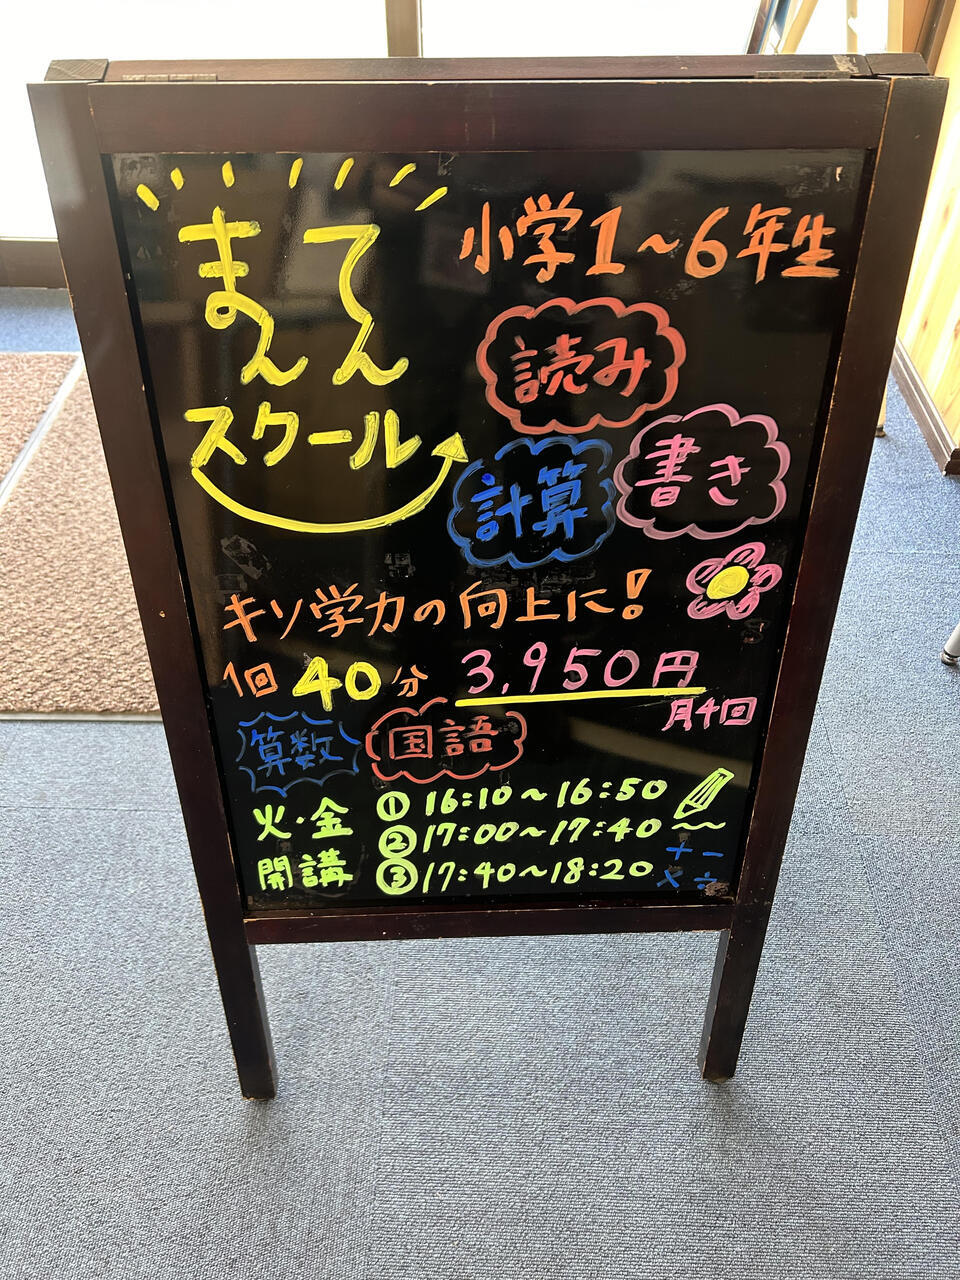 まんてん
スクール
小学1～6年生
読み
書き
計算
キソ学力の向上に!
1回 40分 3,950円
月4回
算数 国語
火・金 ① 16:10～16:50
② 17:00～17:40
開講 ③ 17:40～18:20
+ −
× ÷